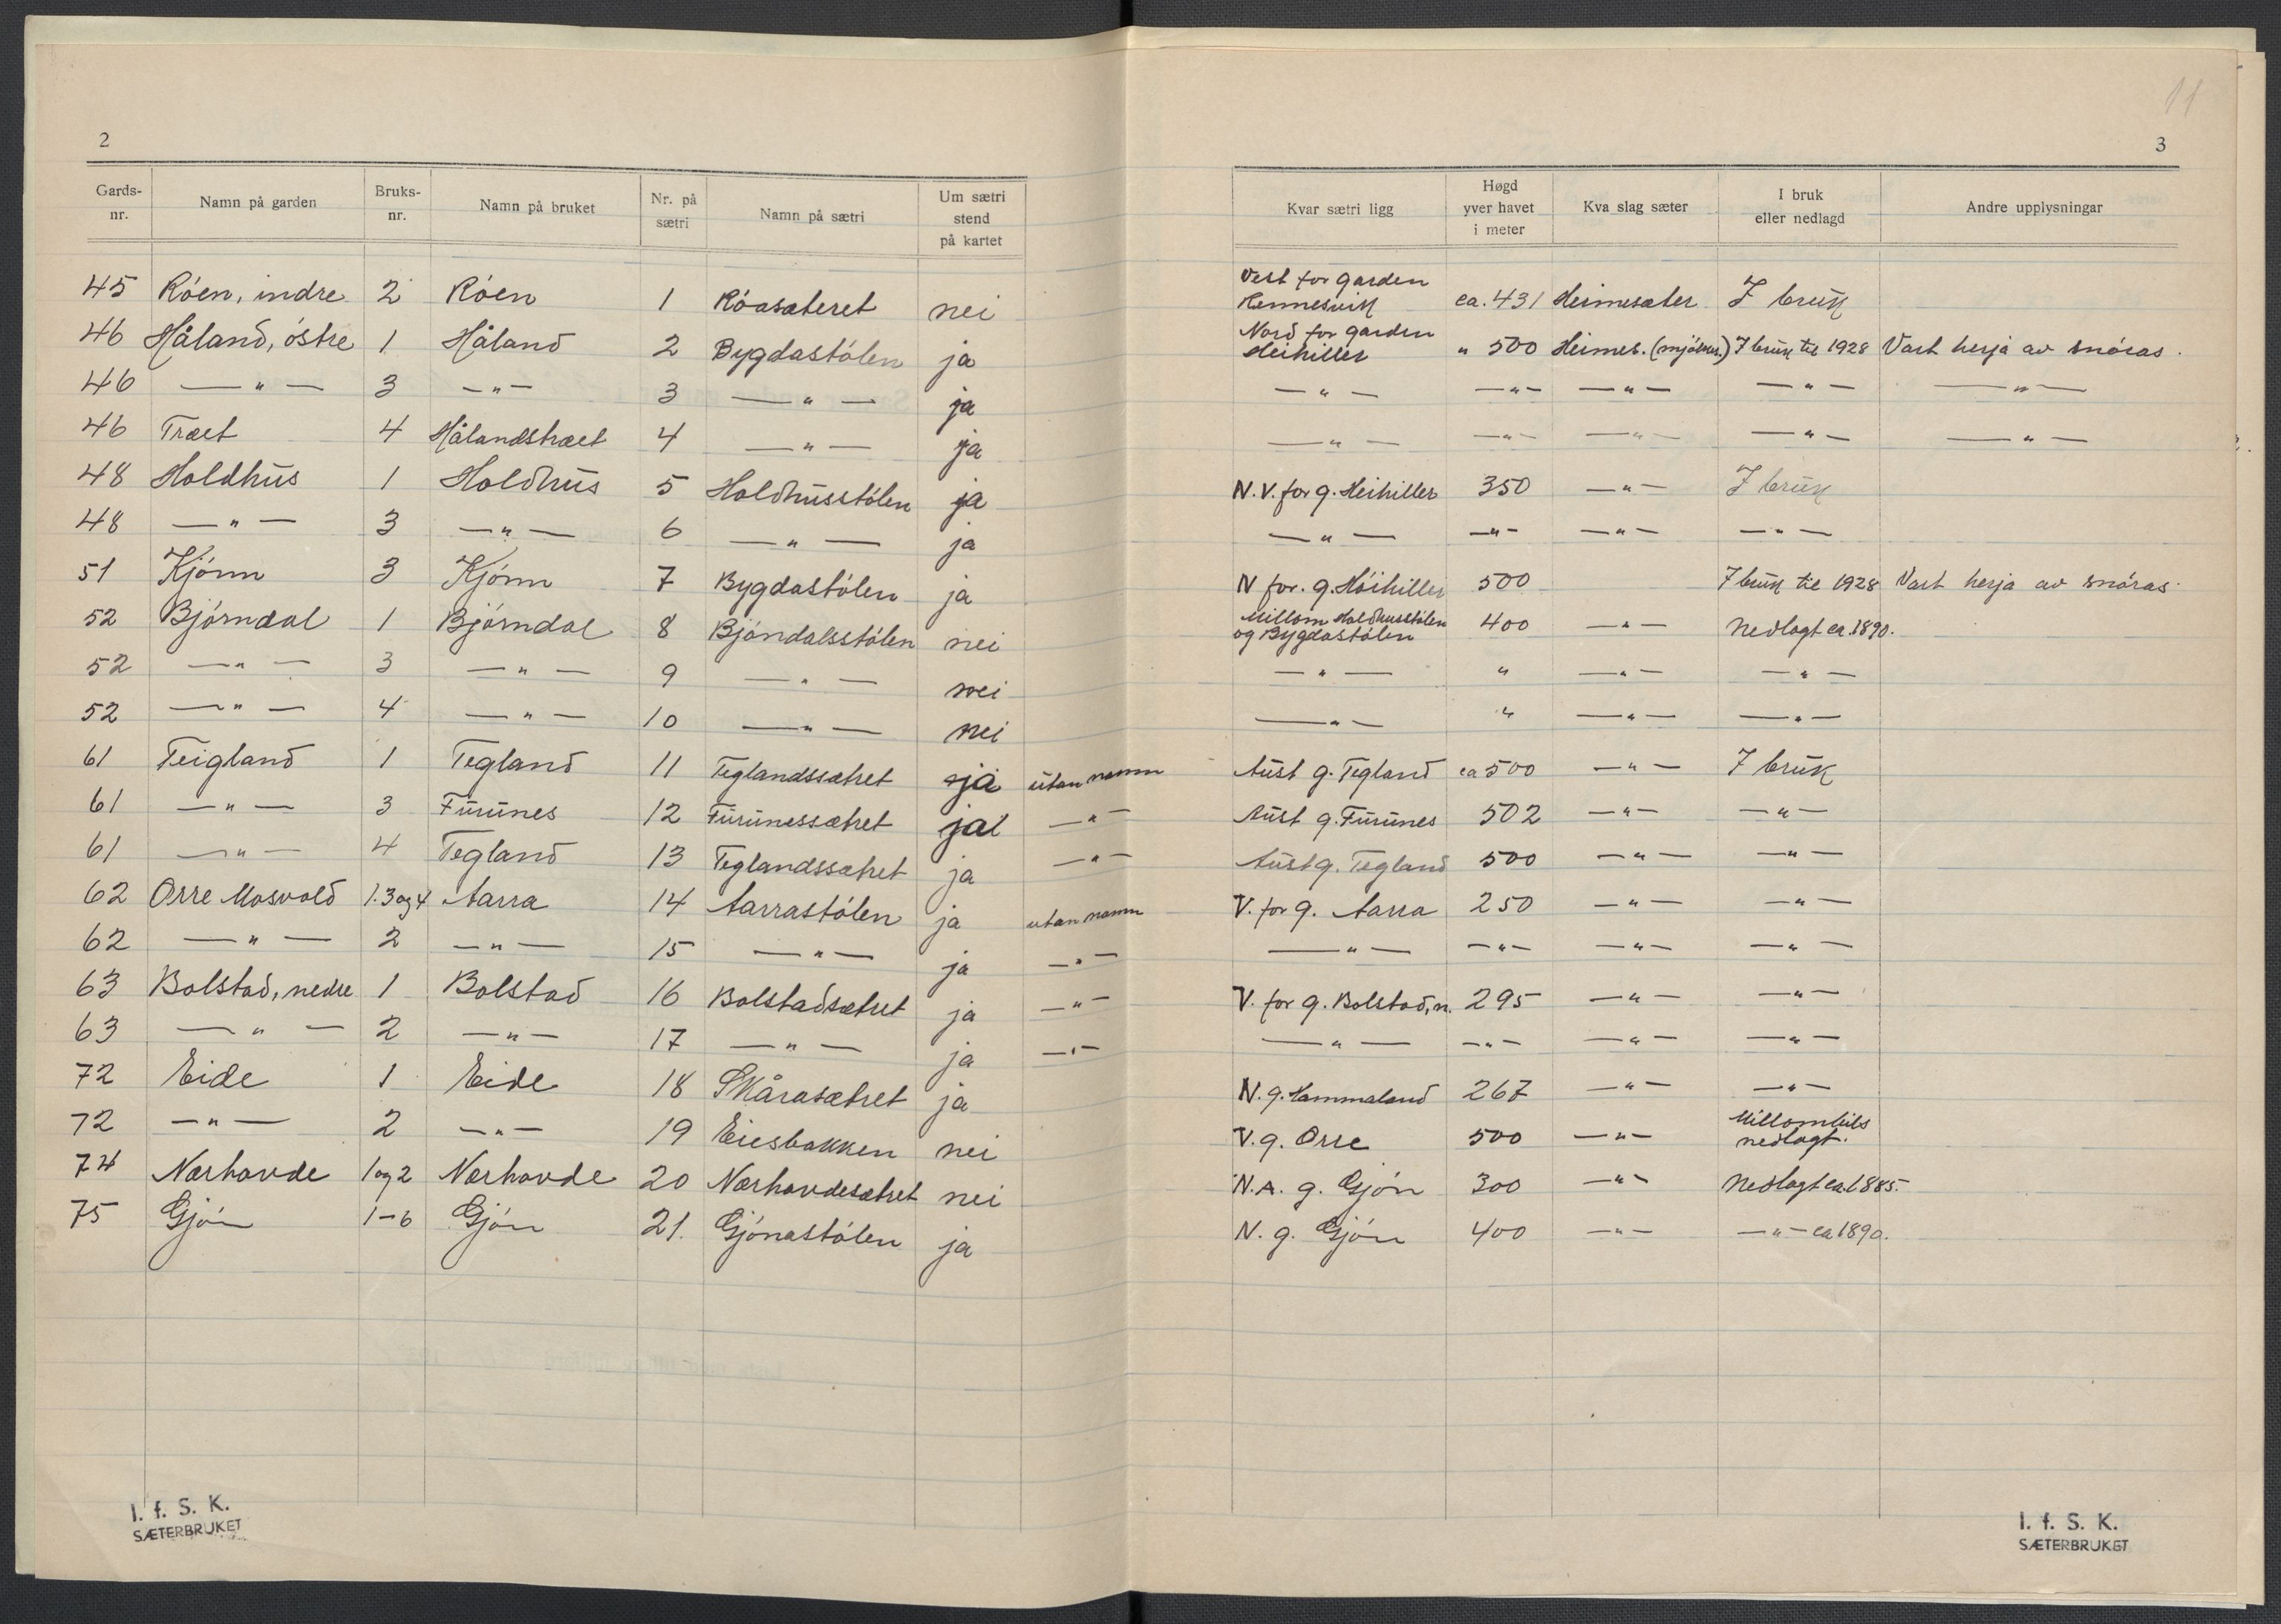 11
2
3
Gards-nr. Namn på garden Bruks-nr. Namn på bruket Nr. på sætri Namn på sætri Um sætri stend på kartet Kvar sætri ligg Høgd yver havet i meter Kva slag sæter I bruk eller nedlagd Andre upplysningar
45 Róen, indre 2 Róen 1 Róasæteret nei Vest for garden Rennesvik ca. 431 Heimesæter I bruk
46 Håland, óstre 1 Håland 2 Bygdastólen ja Nord for garden Heihiller " 500 Heimes. (mjólkes.) I bruk til 1928 Vart herja av snóras.
46 —"— 3 -"- 3 —"— ja —"— —"— —"— —"— —"—
46 Træet 4 Hålandstræet 4 —"— ja —"— —"— —"— —"— —"—
48 Holdhus 1 Holdhus 5 Holdhusstólen ja N.V. for g. Heihiller 350 —"— I bruk
48 —"— 3 —"— 6 —"— ja —"— —"— —"— —"—
51 Kjónn 3 Kjónn 7 Bygdastólen ja N for. g. Hóihiller 500 I bruk til 1928 Vart herja av snóras.
52 Bjórndal 1 Bjórndal 8 Bjóndalsstólen nei Millom Holdhusstólen og Bygdastólen 400 —"— Nedlagt ca. 1890.
52 —"— 3 —"— 9 —"— nei —"— " —"— —"—
52 —"— 4 —"— 10 —"— nei —"— " —"— —"—
61 Teigland 1 Tegland 11 Teglandssætret ja utan namn Aust g. Tegland ca 500 —"— I bruk
61 —"— 3 Furunes 12 Furunessætret ja —"— Aust g. Furunes 502 —"— —"—
61 —"— 4 Tegland 13 Teglandssætret ja —"— Aust g. Tegland 500 —"— —"—
62 Orre Mosvold 1.3 og 4 Aarra 14 Aarrastólen ja utan namn V. for g. Aarra 250 —"— —"—
62 —"— 2 —"— 15 —"— ja —"— —"— —"— —"— —"—
63 Bolstad, nedre 1 Bolstad 16 Bolstadsætret ja —"— V. for g. Bolstad, n. 295 —"— —"—
63 —"— 2 —"— 17 —"— ja —"— —"— —"— —"— —"—
72 Eide 1 Eide 18 Skårasætret ja N. g. Hammaland 267 —"— —"—
72 —"— 2 —"— 19 Eiesbakken nei V. g. Orre 500 —"— Millombils nedlagt.
74 Nærhovde 1 og 2 Nærhovde 20 Nærhovdesætret nei N.A. g. Gjón 300 —"— Nedlagt ca. 1885.
75 Gjón 1-6 Gjón 21. Gjónastólen ja N. g. Gjón 400 —"— —"— ca 1890.
I. f. S. K.
SÆTERBRUKET
I. f. S. K.
SÆTERBRUKET